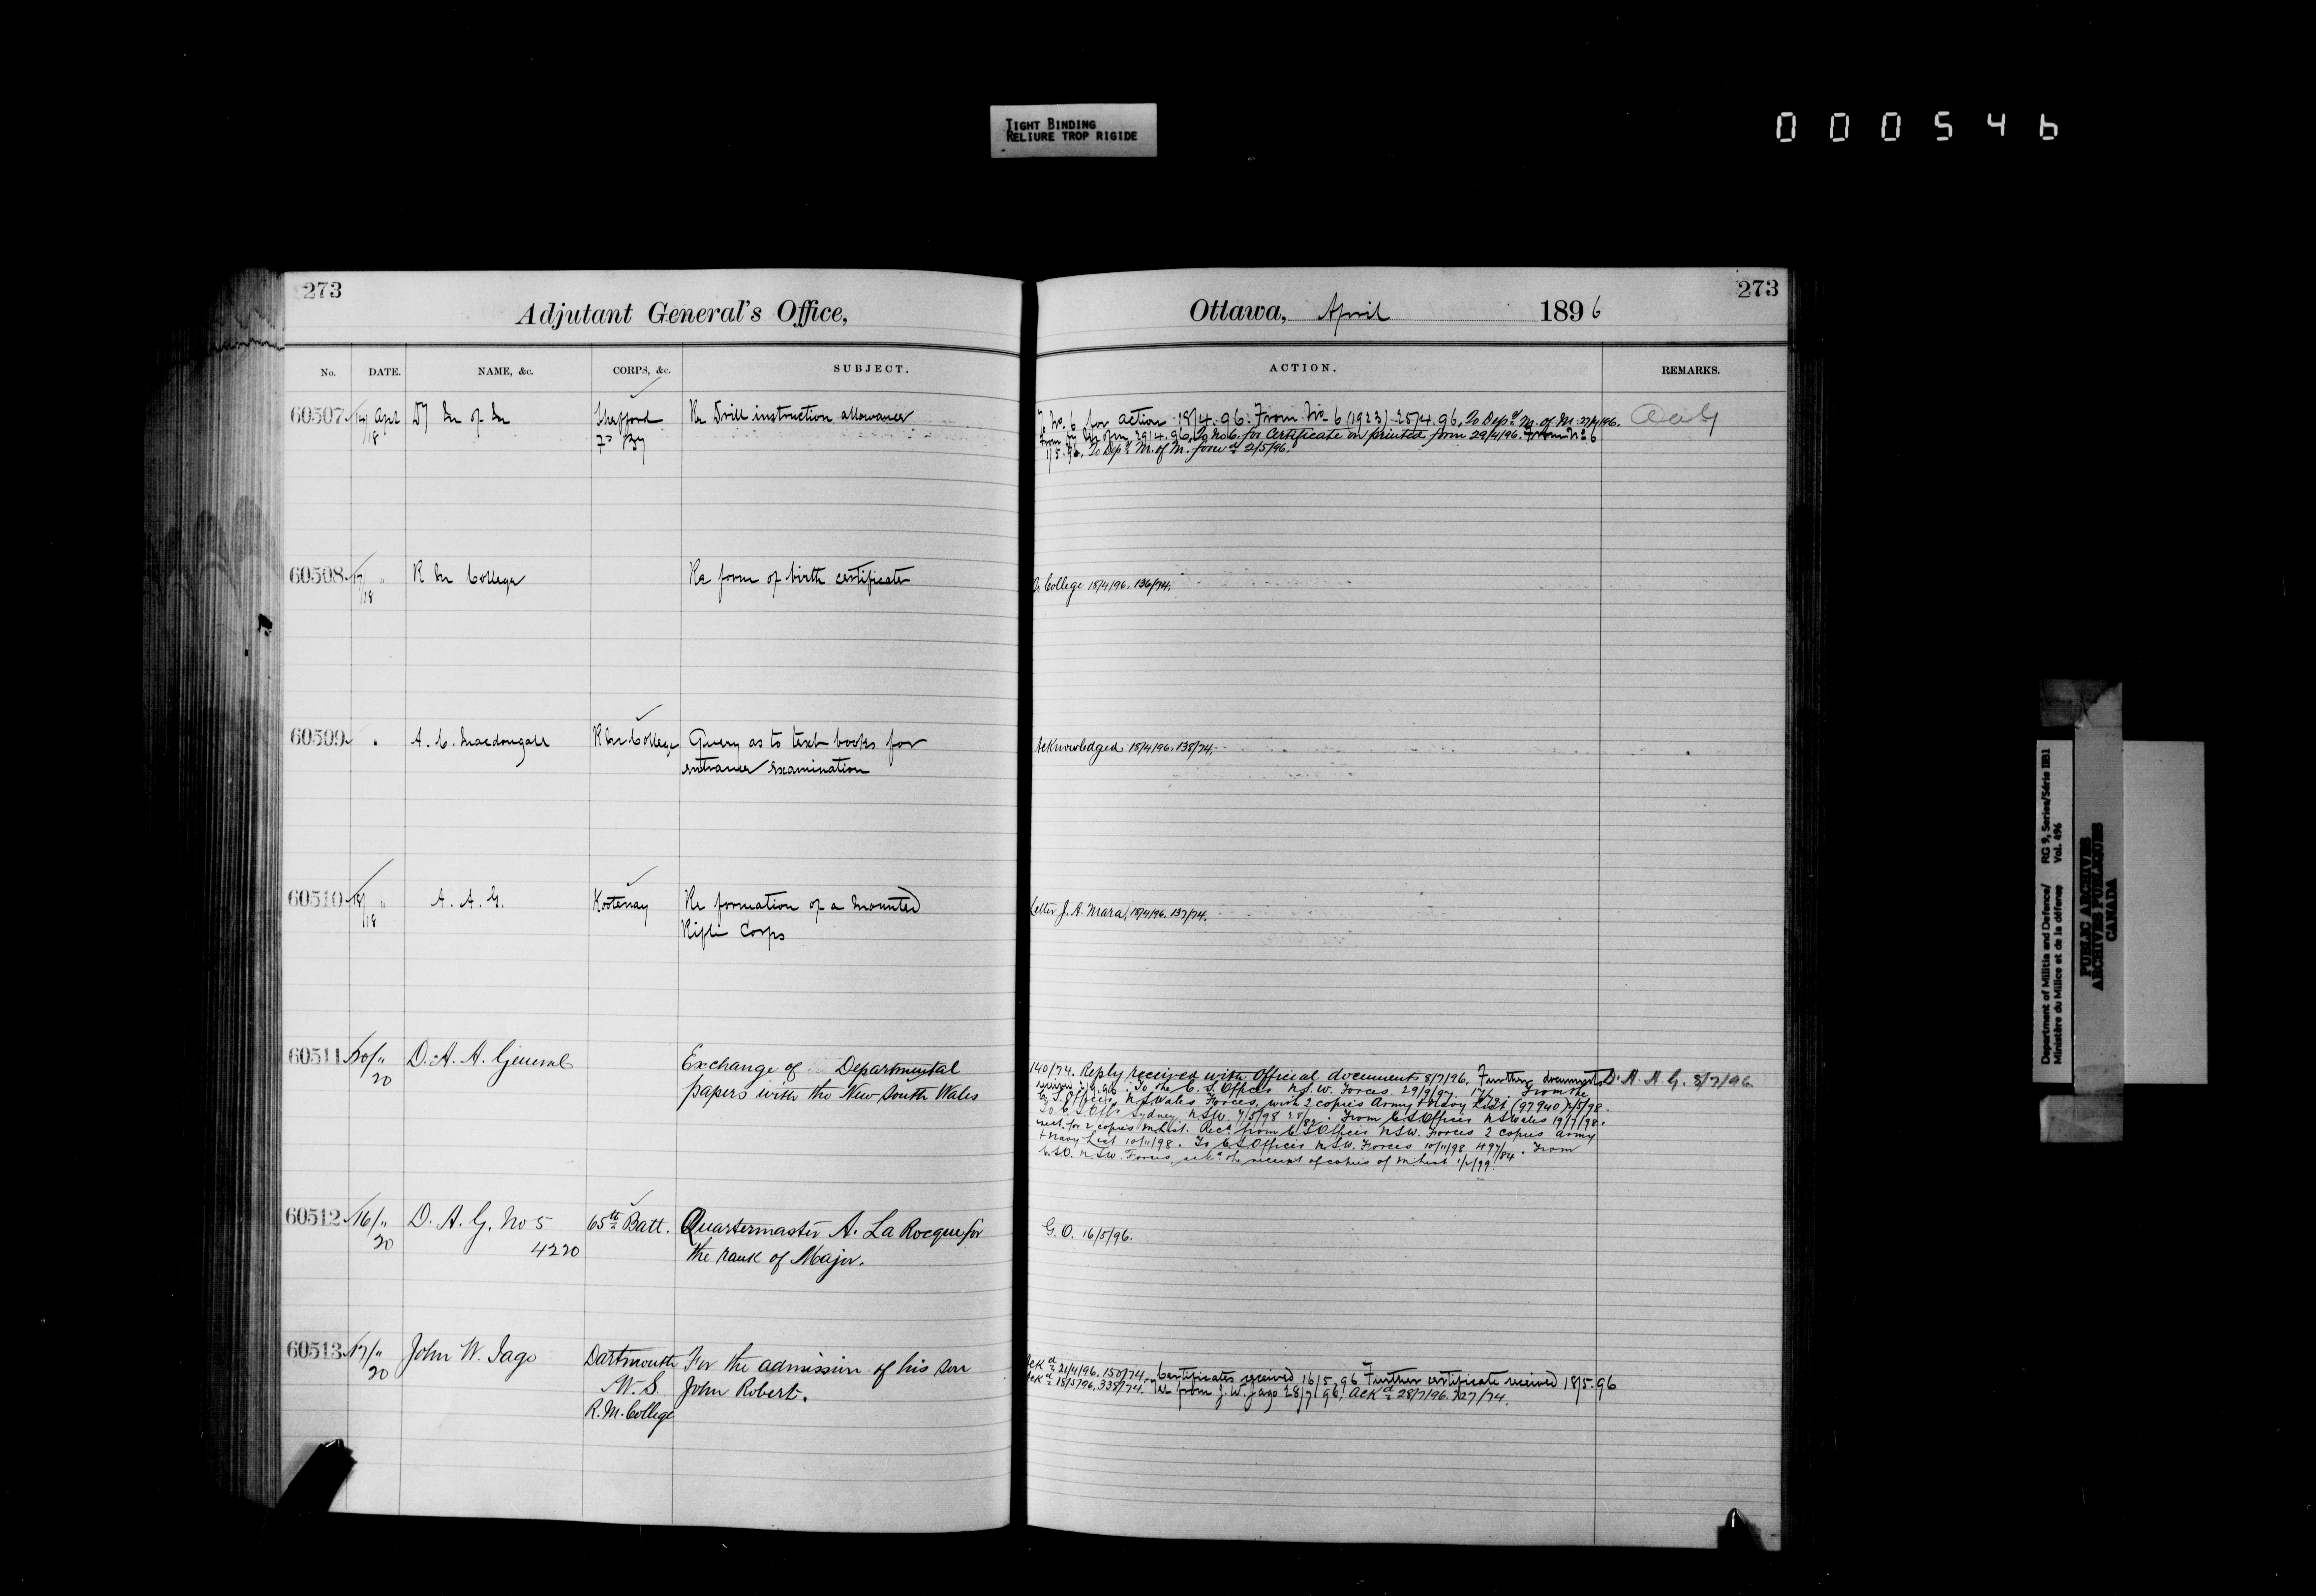 TIGHT BINDING
RELIURE TROP RIGIDE
000546
273
Adjutant General's Office,
No. DATE. NAME, &c. CORPS, &c. SUBJECT.
60507 14/18 Apl Dy M of M Shefford Re Drill instruction allowance
7th By
60508 17/18 " R M College Re form of birth certificate
60509 " A. C. Macdougall R M College Query as to text books for
entrance examination
60510 18/18 " A. A. G. Kootenay Re formation of a Mounted
Rifle Corps
60511 20/20 " D. A. A. General Exchange of Departmental
papers with the New South Wales
60512 16/20 " D. A. G. No 5 65th Batt. Quartermaster A. La Rocque for
4220 the rank of Major.
60513 17/20 " John W. Jago Dartmouth For the admission of his son
N. S. John Robert.
R. M. College
273
Ottawa, April 1896
ACTION. REMARKS.
To No. 6 for action 18/4.96. From No. 6 (1923) 25/4.96. To Depy M. of M. 27/4/96.
From Dy M of M 29/4.96. To No 6 for Certificate on printed form 29/4/96. From No 6
1/5.96. To Depy M. of M. forwd 2/5/96.
To College 18/4/96. 136/74.
Acknowledged 18/4/96. 138/74.
Letter J. A. Mara, 18/4/96. 137/74.
140/74. Reply received with Official document 8/7/96. Further documents D. A. A. G. 8/7/96
To the C. S. Officer N.S.W. Forces 29/9/97 From the
C. S. Officer N S Wales Forces, with 2 copies Army & Navy List (97940) 2/5/98.
Sydney N.S.W. 7/5/98 From C S Officer N S Wales 19/7/98.
for 2 copies M. List. Recd from C S Officer N S W. Forces 2 copies Army
& Navy List 10/11/98. To C S Officer N.S.W. Forces 10/11/98 497/84. From
C. S. O. N.S.W. Forces, ackg the receipt of copies of M. List 1/2/99.
G. O. 16/5/96.
Ackd 21/4/96. 150/74. Certificates received 16/5.96 Further certificate received 18/5.96
Ackd 18/5/96. 338/74. Let from J. W. Jago 28/7/96. Ackd 28/7/96. 727/74.
Department of Militia and Defence/ RG 9, Series/Série IIB1
Ministère du Milice et de la défense Vol. 496
PUBLIC ARCHIVES
ARCHIVES PUBLIQUES
CANADA